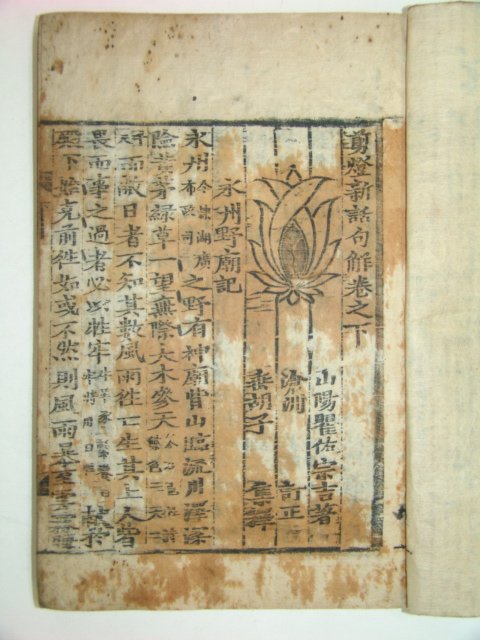 剪燈新話句解卷之下
山陽瞿佑宗吉著
滄洲 訂正
垂胡子 集釋
永州野廟記
永州今隸湖廣布政司之野有神廟背山臨流川澤深
險黃茅綠草一望無際大木參天
而蔽日者不知其數風雨往亡生其上人皆
畏而事之過者必以牲牢獻於
殿下始克前往如或不然則風雨暴至雲霧晦